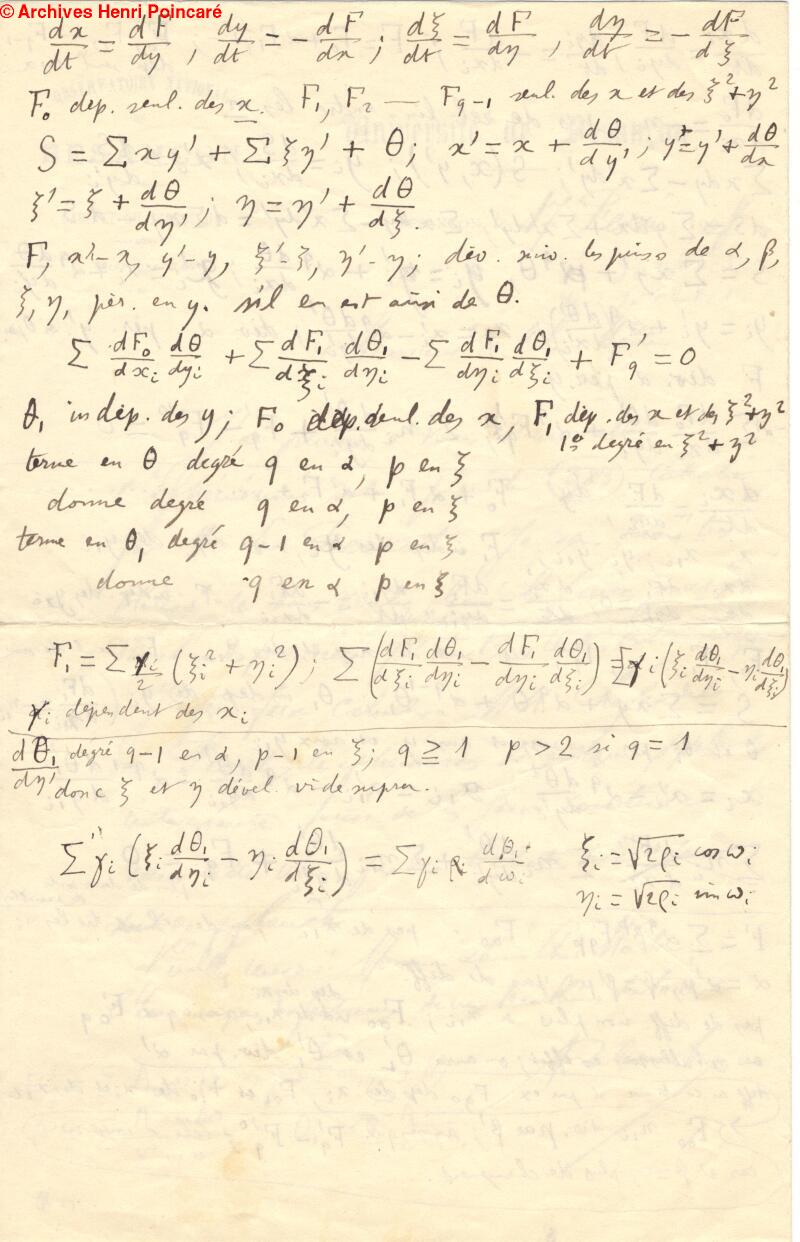 © Archives Henri Poincaré
dx/dt = dF/dy, dy/dt = - dF/dx; dξ/dt = dF/dη, dη/dt = - dF/dξ
F₀ dép. seul. des x. F₁, F₂ — F_{q-1} seul. des x et des ξ²+η²
S = Σ x y' + Σ ξ η' + θ; x' = x + dθ/dy'; y = y' + dθ/dx
ξ' = ξ + dθ/dη'; η = η' + dθ/dξ.
F, x'-x, y'-y, ξ'-ξ, η'-η; dév. suiv. les puiss de α, β,
ξ, η, pér. en y. s'il en est ainsi de θ.
Σ dF₀/dx_i dθ/dy_i + Σ dF₁/dξ_i dθ₁/dη_i - Σ dF₁/dη_i dθ₁/dξ_i + F'_q = 0
θ₁ indép. des y; F₀ dép. seul. des x, F₁ dép. des x et des ξ²+η²
1er degré en ξ²+η²
terme en θ degré q en α, p en ξ
donne degré q en α, p en ξ
terme en θ₁ degré q-1 en α p en ξ
donne q en α p en ξ
F₁ = Σ γ_i/2 (ξ_i² + η_i²); Σ (dF₁/dξ_i dθ₁/dη_i - dF₁/dη_i dθ₁/dξ_i) = Σ γ_i (ξ_i dθ₁/dη_i - η_i dθ₁/dξ_i)
γ_i dépendent des x_i
dθ₁/dη' degré q-1 en α, p-1 en ξ; q ≧ 1 p > 2 si q = 1
donc ξ et η dével. vide supra.
Σ γ_i (ξ_i dθ₁/dη_i - η_i dθ₁/dξ_i) = Σ γ_i dθ₁/dω_i ξ_i = √2ρ_i cos ω_i
η_i = √2ρ_i sin ω_i